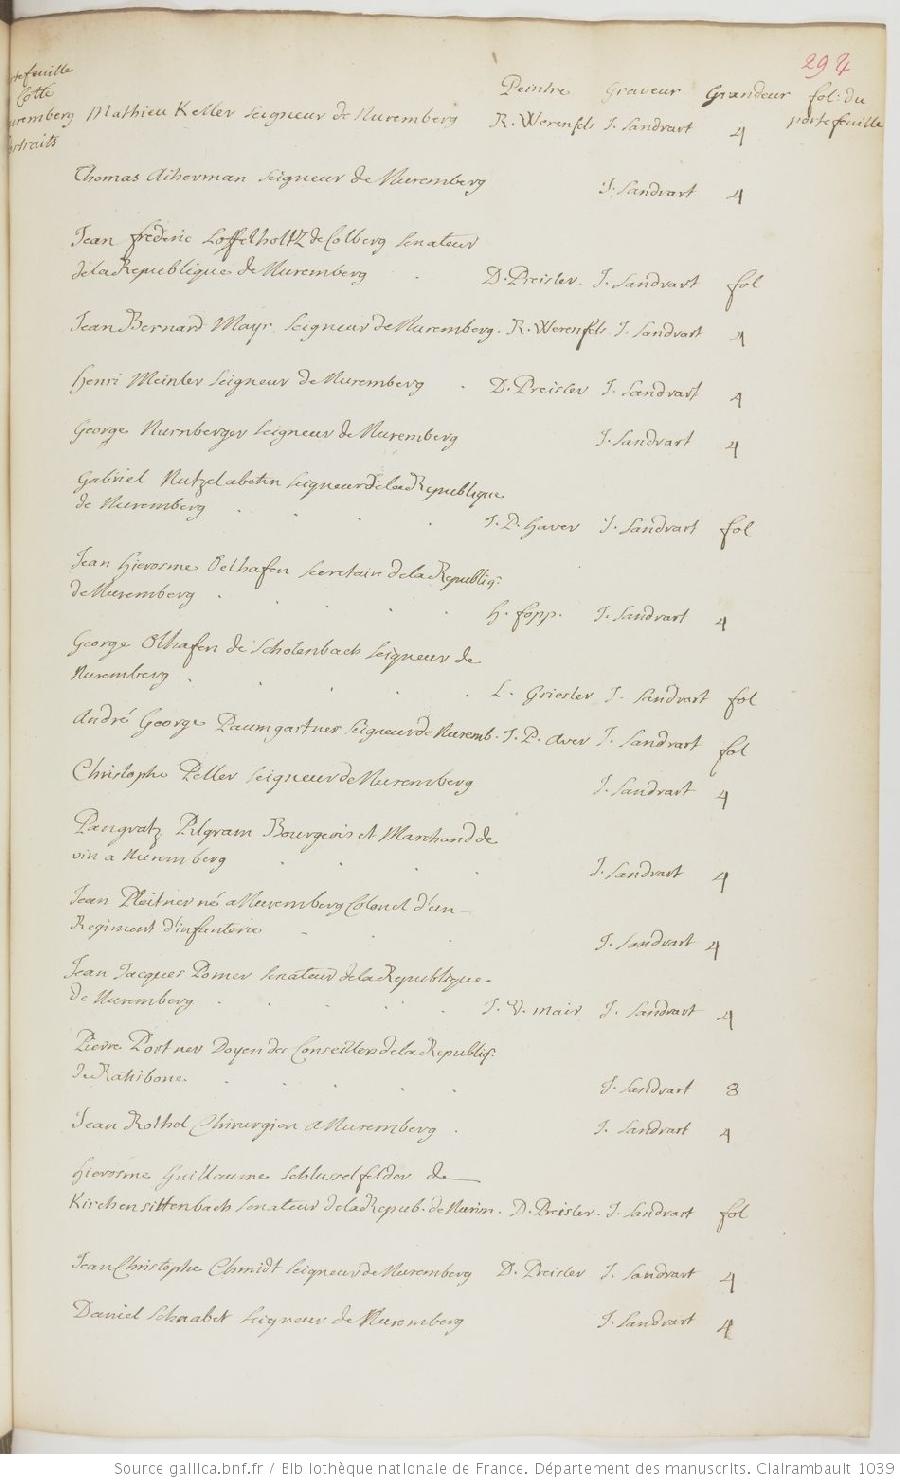 294
Peintre Graveur Grandeur fol. du portefeuille
feuille
Cotté
Mathieu Keller Seigneur de Nuremberg R. Werenfels J. Sandrart 4
Thomas Akerman Seigneur de Nuremberg J. Sandrart 4
Jean frederic Loffelholtz de Colberg Senateur
de la Republique de Nuremberg D. Preisler J. Sandrart fol
Jean Bernard Mayr Seigneur de Nuremberg. R. Werenfels J. Sandrart 4
Henri Meinler Seigneur de Nuremberg D. Preisler J. Sandrart 4
George Nurnberger Seigneur de Nuremberg J. Sandrart 4
Gabriel Nutzel Seigneur de la Republique
de Nuremberg J. P. Haver J. Sandrart fol
Jean Hierosme Oelhafen Secretair de la Republiq.
de Nuremberg H. fopp. J. Sandrart 4
George Olhafen de Scholenbach Seigneur de
Nuremberg L. Griesler J. Sandrart fol
André George Paumgartner Seigneur de Nuremb. J. P. Aver J. Sandrart fol
Christophe Peller Seigneur de Nuremberg J. Sandrart 4
Pangratz Pilgram Bourgeois et Marchand de
vin a Nuremberg J. Sandrart 4
Jean Pleitner né a Nuremberg Colonel d'un
Regiment d'infanterie J. Sandrart 4
Jean Jacques Pomer Senateur de la Republique
de Nuremberg J. V. mair J. Sandrart 4
Pierre Portner Doyen des Conseillers de la Republiq.
de Ratisbone J. Sandrart 8
Jean Rothel Chirurgien a Nuremberg J. Sandrart 4
Hierosme Guillaume Schlusselfelder de
Kirchensittenbach Senateur de la Repub. de Nurim. D. Preisler J. Sandrart fol
Jean Christophe Chmidt Seigneur de Nuremberg D. Preisler J. Sandrart 4
Daniel Schnabel Seigneur de Nuremberg J. Sandrart 4
Source gallica.bnf.fr / Bibliothèque nationale de France. Département des manuscrits. Clairambault 1039